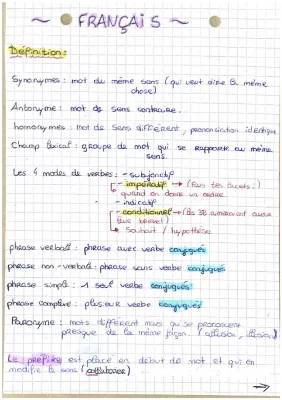 ~ FRANÇAIS ~
Définition :
Synonymes : mot du même sens (qui veut dire la même
chose)
Antonyme : mot de sens contraire.
homonymes : mot de sens différent, prononciation identique
Champ lexical : groupe de mot qui se rapporte au même
sens.
Les 4 modes de verbes : - subjonctif
- impératif → (fais tes devoirs !)
quand on donne un ordre
- indicatif
- conditionnel → (les 3B aimeraient avoir
leur brevet)
↳ Souhait / hypothèse
phrase verbale : phrase avec verbe conjugués
phrase non-verbale : phrase sans verbe conjugués
phrase simple : 1 seul verbe conjugués
phrase complexe : plusieur verbe conjugués
Paronyme : mots différent mais qui se prononcent
presque de la même façon. (allusion, illusion)
Le préfixe est placé en début de mot et qui en
modifie le sens (collaborer)
→